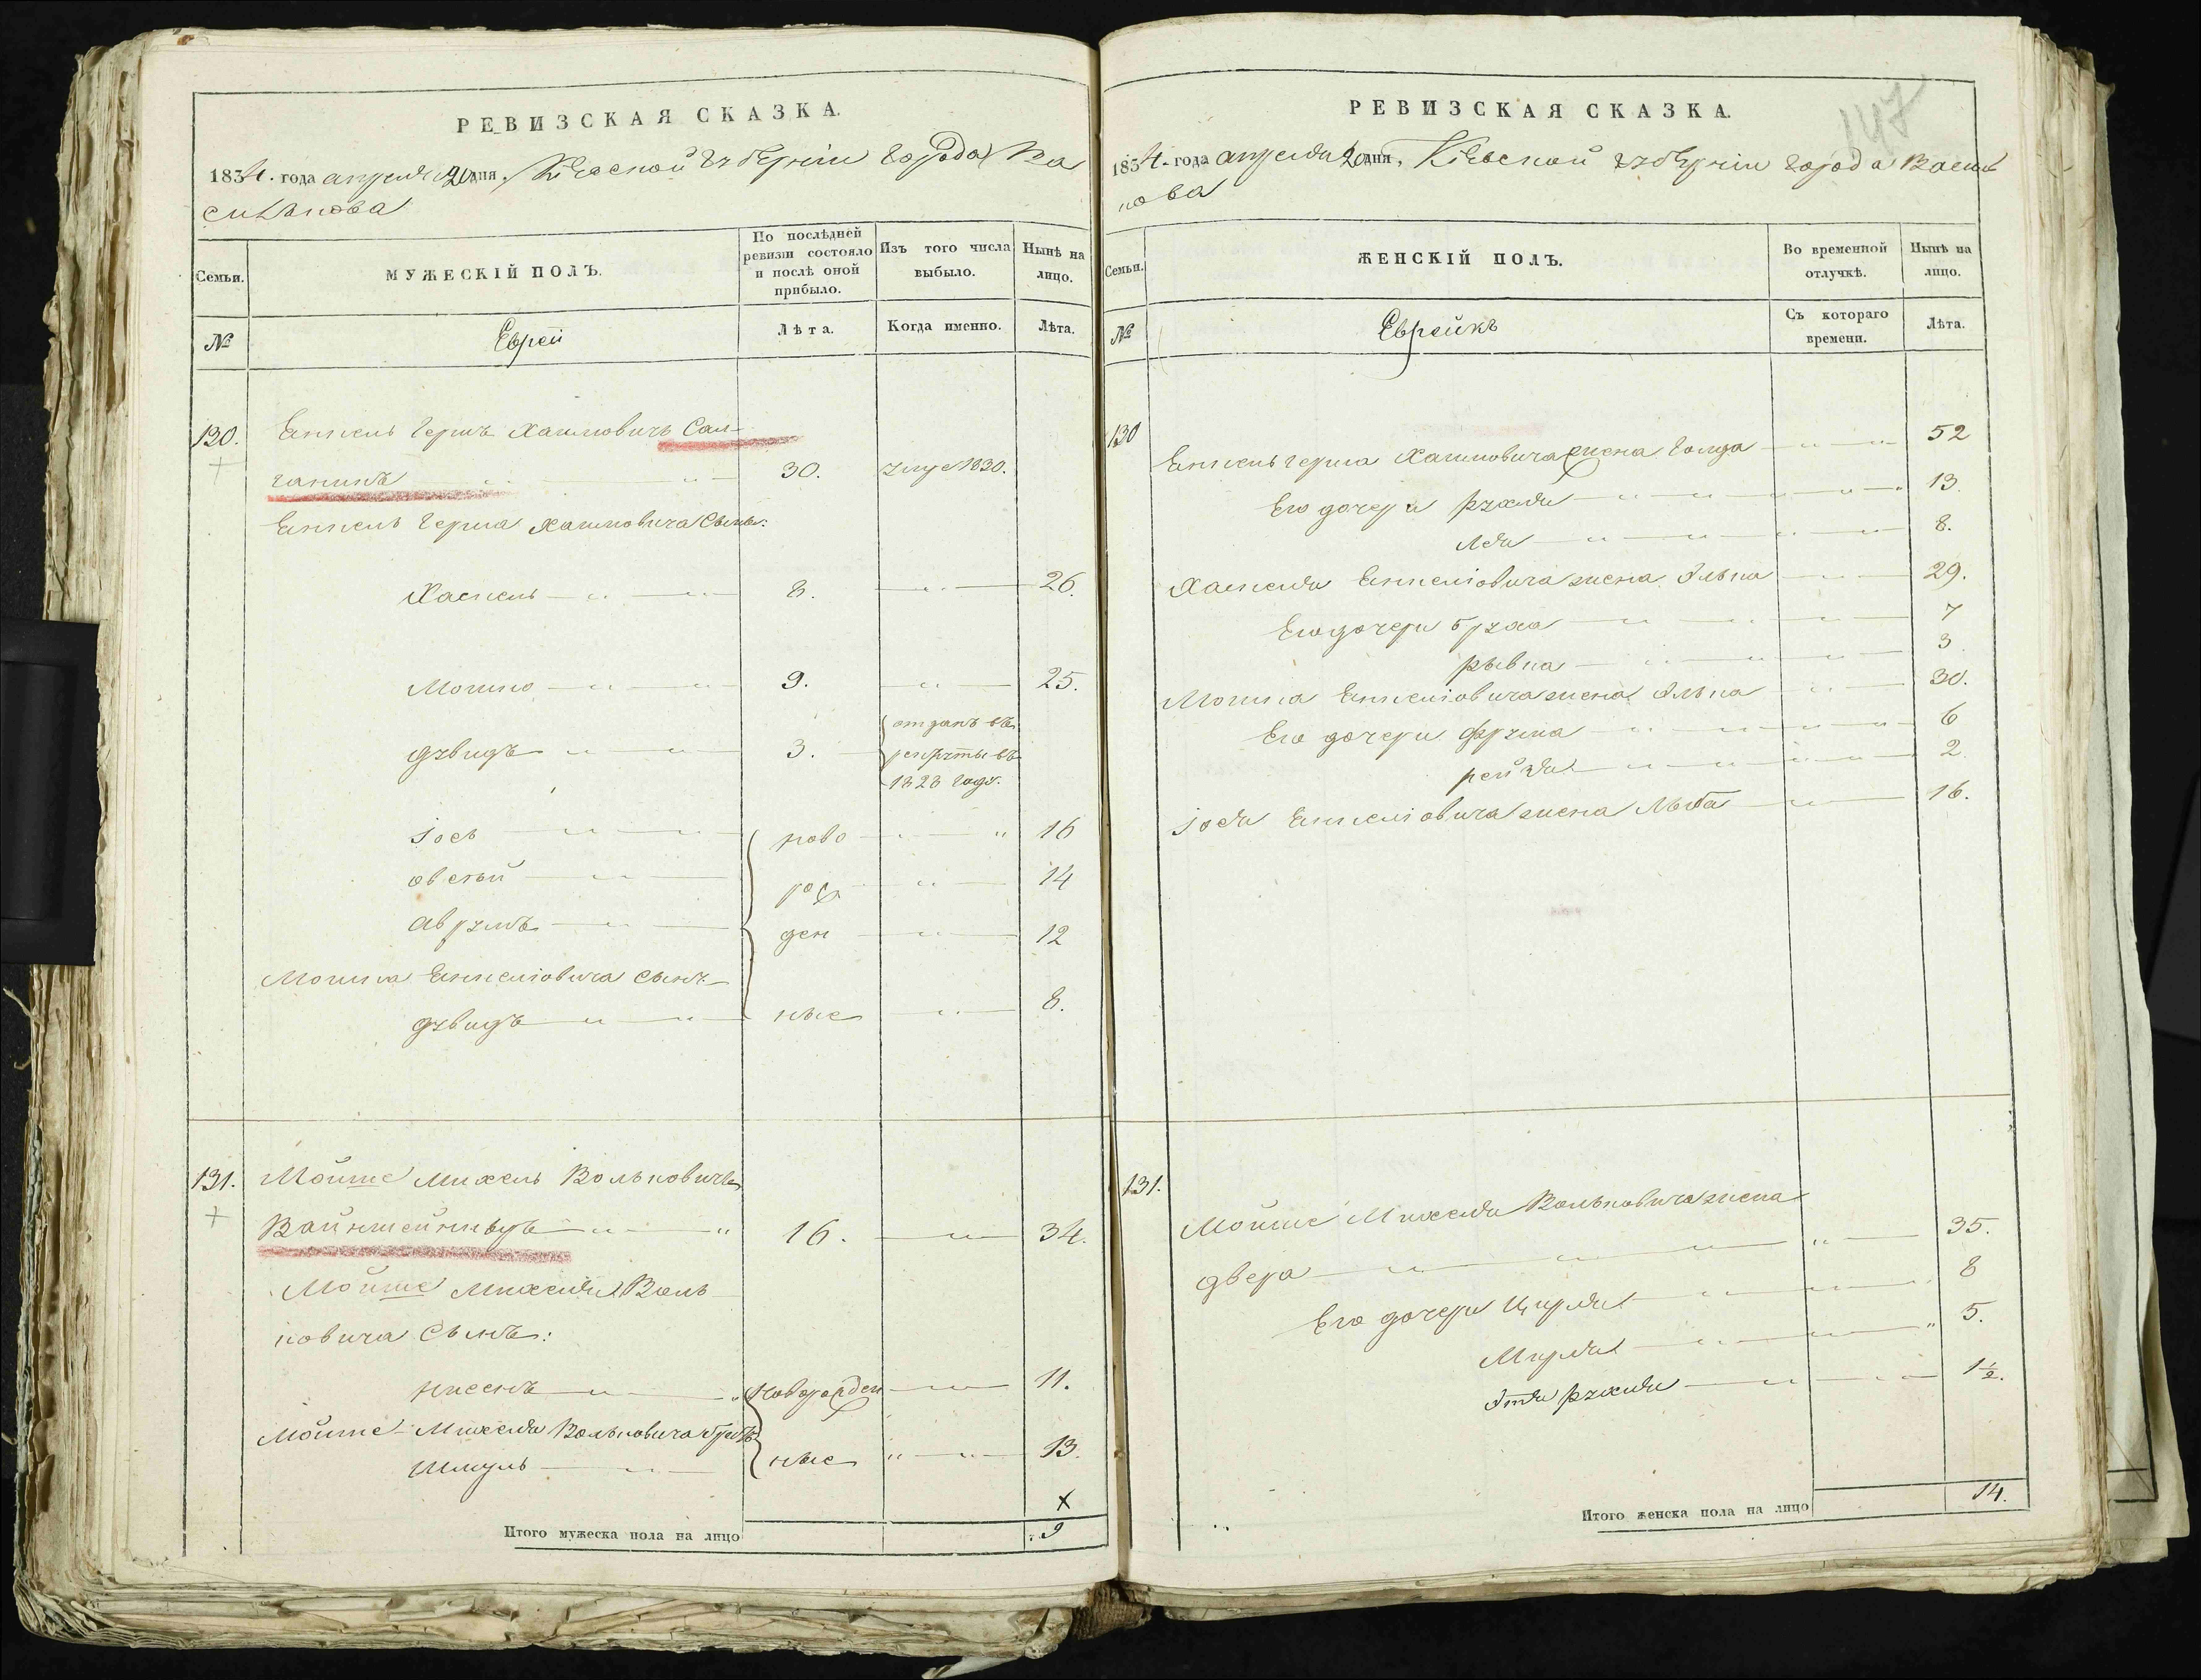 РЕВИЗСКАЯ СКАЗКА.
1834. года апреля 20 дня. Кіевской губерніи города Ва
силькова
Семьи.
МУЖЕСКІЙ ПОЛЪ.
По послѣдней ревизіи состояло и послѣ оной прибыло.
Изъ того числа выбыло.
Нынѣ на лицо.
№
Еврей
Лѣта.
Когда именно.
Лѣта.
130. Янкель Гершъ Хаимовичъ Сал-
ганикъ 30. умре 1830.
Янкель Герша Хаимовича сыны:
Хаскель 8. 26.
Мошко 9. 25.
Дувидъ 3. отданъ въ рекруты въ 1828 году.
Іось ново 16
Овсѣй рож 14
Аврумъ ден 12
Мошка Янкеліовича сынъ
Дувидъ ные 8.
131. Мойше Михель Вольковичъ
16. 34.
Мойше Михеля Воль
ковича сынъ:
Нисенъ новорожден 11.
Мойше Михеля Вольковича братъ
Шмуль ные 13.
Итого мужеска пола на лицо 9
147
РЕВИЗСКАЯ СКАЗКА.
1834. года апреля 20 дня. Кіевской губерніи города Василь
кова
Семьи.
ЖЕНСКІЙ ПОЛЪ.
Во временной отлучкѣ.
Нынѣ на лицо.
№
Еврейкъ
Съ котораго времени.
Лѣта.
130 Янкель Герша Хаимовича жена Голда 52
Его дочери Рухля 13.
Лея 8.
Хаскеля Янкеліовича жена Элька 29.
Его дочери Бруха 7
Рывка 3.
Мошка Янкеліовича жена Элька 30.
Его дочери Фрума 6
Рейзя 2
Іося Янкеліовича жена 16.
131. Мойше Михеля Вольковича жена
Двера 35.
Его дочери Цирля 8
Мирля 5.
Этя Рухля 1½.
Итого женска пола на лицо 14.